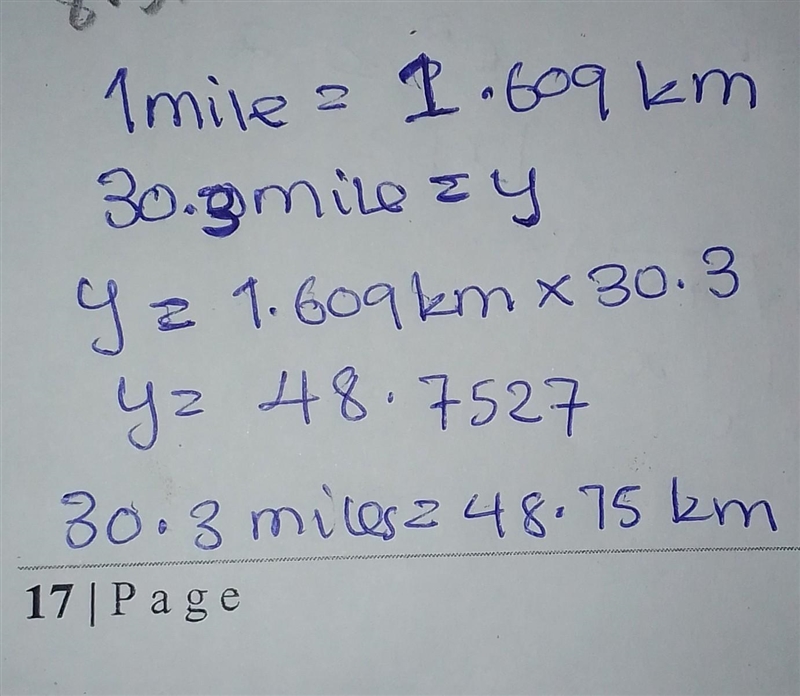 1 mile = 1.609 km
30.3 mile = y
y = 1.609 km × 30.3
y = 48.7527
30.3 miles = 48.75 km
17 | Page